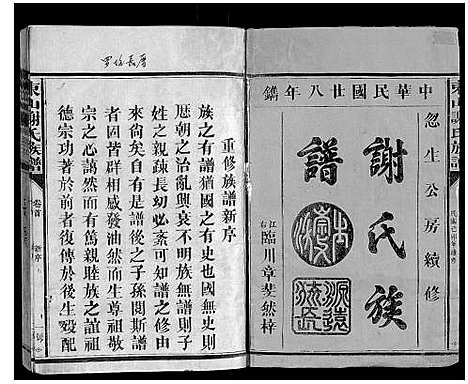 中華民國廿八年鐫
忽生公房續修
謝氏族譜
江右臨川章斐然梓
源遠流長
東山謝氏族譜
重修族譜新序
族之有譜猶國之有史也國無史則
歷朝之治亂興衰不明族無譜則子
姓之親疎長幼必紊可知譜之修由
來尙矣自有是譜後之子孫閱斯譜
者因皆群相感發油然而生尊祖敬
宗之心藹然而有篤親睦族之誼祖
德宗功著於前者復傳於後猶殁配
東山謝氏族譜
卷首
新序